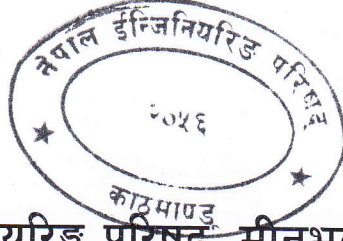 नेपाल ईन्जिनियरिङ परिषद्
२०५६
काठमाण्डू
परिषद्